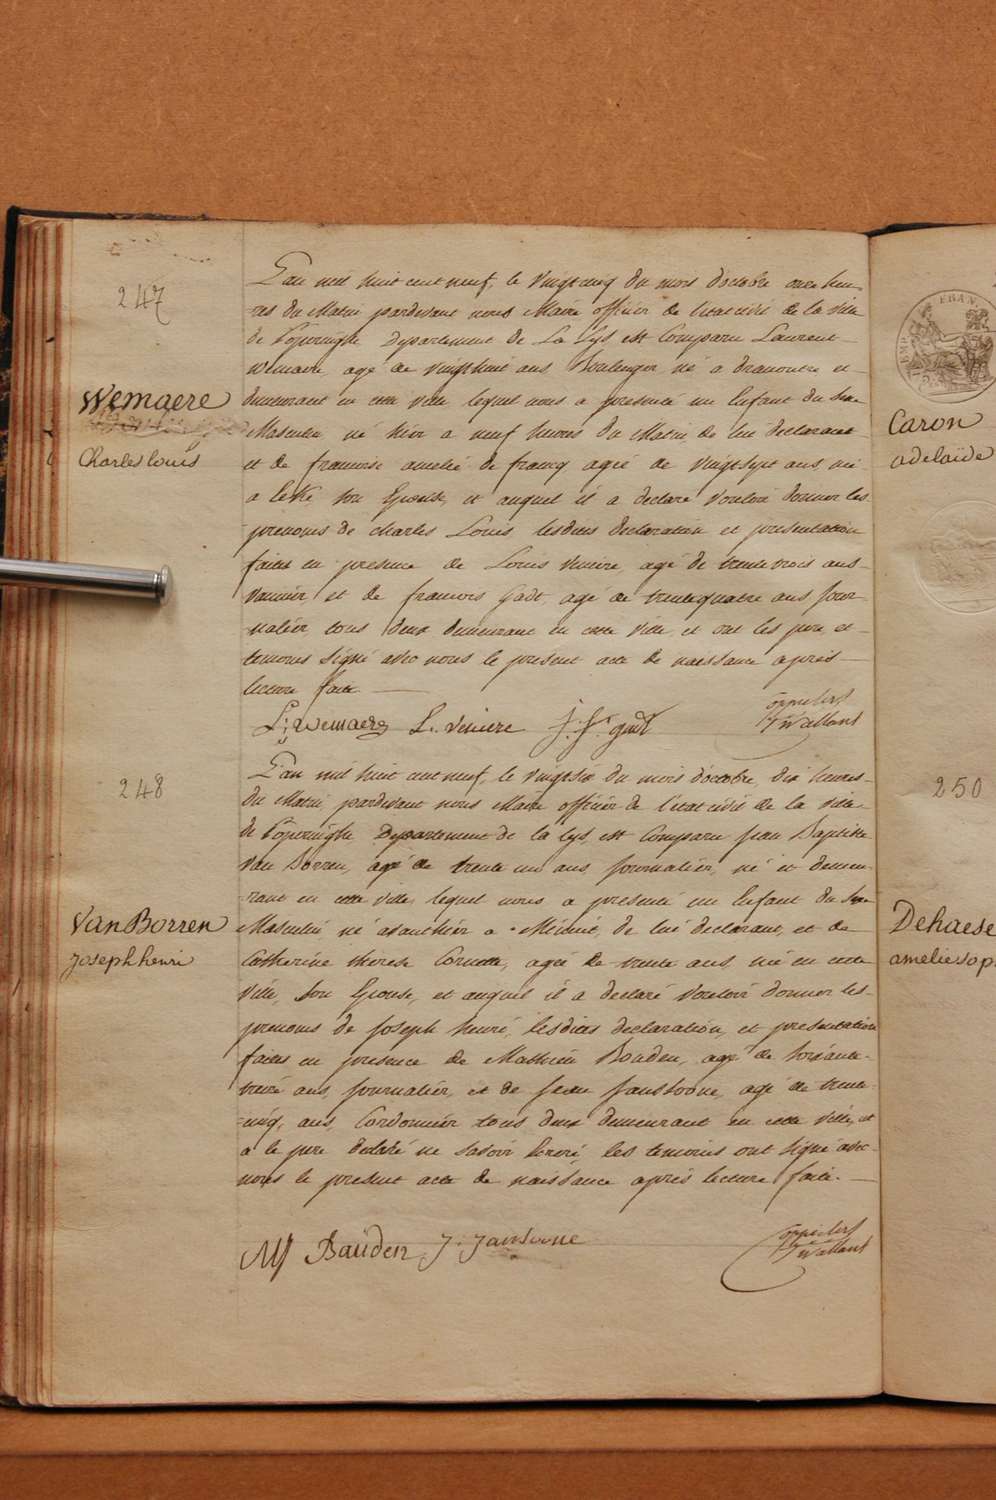 247
Wemaere
Charles louis
L'an mil huit cent neuf, le vingtcinq du mois d'octobre onze heu-
res du Matin pardevant nous Maire officier de l'état civil de la ville
de Poperinghe Departement de La Lys est Comparu Laurent
Wemaere agé de vingthuit ans Boulenger né a dranoutre et
demeurant en cette ville lequel nous a presenté un Enfant du Sexe
Masculin né hier a neuf heures du Matin de lui declarant
et de francoise amelie de francq agée de vingtsept ans née
a leké son Epouse, et auquel il a declaré vouloir donner les
prenoms de Charles Louis lesdites declaration et presentation
faites en presence de Louis veniere, agé de trente trois ans
vannier, et de francois Gadt, agé de trentequatre ans jour-
nalier tous deux demeurant en cette ville, et ont les pere et
temoins signé avec nous le present acte de naissance aprés
lecture faite
L: Wemaere L. veniere j. fs. gadt
F Wallant
248
Van Borren
Joseph henri
L'an mil huit cent neuf, le vingtsix du mois d'octobre, dix heures
du Matin, pardevant nous Maire officier de l'état civil de la ville
de Poperinghe Departement de la Lys, est Comparu Jean Baptiste
Van Borren, agé de trente un ans, journalier, né et demeu-
rant en cette ville, lequel nous a presenté un Enfant du Sexe
Masculin né avanthier a Minuit, de lui declarant, et de
Catherine therese Cornette, agée de trente ans, née en cette
ville, son Epouse, et auquel il a declaré vouloir donner les
prenoms de Joseph henri, lesdites declaration, et presentation
faites en presence de Mathieu Bouden, agé de soixante
treize ans, journalier, et de Jean Janssoone, agé de trente
cinq ans, Cordonnier tous deux demeurant en cette ville, et
a le pere declaré ne savoir Ecrire, les temoins ont signé avec
nous le present acte de naissance aprés lecture faite.
M Baüden J. Janssoone
F Wallant
EMP FRAN
Caron
adelaïde
250
Dehaese
amelie sop